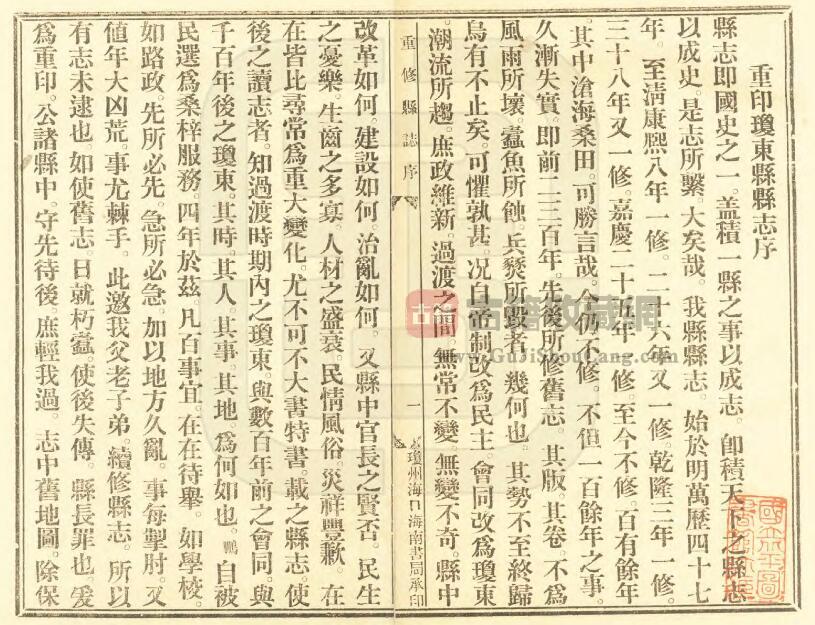 重印瓊東縣縣志序
縣志即國史之一。蓋積一縣之事以成志。卽積天下之縣志
以成史。是志所繫。大矣哉。我縣縣志。始於明萬歷四十七
年。至淸康熙八年一修。二十六年又一修。乾隆三年一修。
三十八年又一修。嘉慶二十五年一修。至今不修。百有餘年
其中滄海桑田。可勝言哉。今仍不修。不但一百餘年之事。
久漸失實。即前二三百年。先後所修舊志。其版。其卷。不爲
風雨所壞。蠹魚所蝕。兵燹所毀者。幾何也。其勢不至終歸
烏有不止矣。可懼孰甚。况自帝制改爲民主。會同改爲瓊東
潮流所趨。庶政維新。過渡之間。無常不變。無變不奇。縣中
重修縣誌序
一
瓊州海口海南書局承印
改革如何。建設如何。治亂如何。又縣中官長之賢否。民生
之憂樂。生齒之多寡。人材之盛衰。民情風俗。災祥豐歉。在
在皆比尋常爲重大變化。尤不可不大書特書。載之縣志。使
後之讀志者。知過渡時期內之瓊東。與數百年前之會同。與
千百年後之瓊東。其時。其人。其事。其地。爲何如也。鵬自被
民選爲桑梓服務。四年於茲。凡百事宜。在在待舉。如學校。
如路政。先所必先。急所必急。加以地方久亂。事每掣肘。又
値年大凶荒。事尤棘手。此邀我父老子弟。續修縣志。所以
有志未逮也。如使舊志。日就朽蠹。使後失傳。縣長罪也。爰
爲重印。公諸縣中。守先待後。庶輕我過。志中舊地圖。除保
古籍
古籍收藏網
www.GuJiShouCang.com